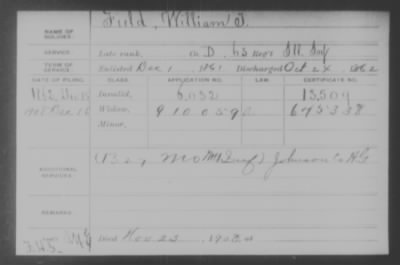 Field, William T.
NAME OF SOLDIER:
SERVICE: Late rank, Co. D, 63 Reg't Ill Inf
TERM OF SERVICE: Enlisted Dec 1, 1861 Discharged Oct 2, 1862
DATE OF FILING. CLASS. APPLICATION NO. LAW. CERTIFICATE NO.
1862, Dec Invalid, 6,032 13,504
1908 Dec 16 Widow, 910059 695338
Minor,
ADDITIONAL SERVICES: Mo Inf) Johnson Co H G
REMARKS:
Died Nov 23, 1908, at